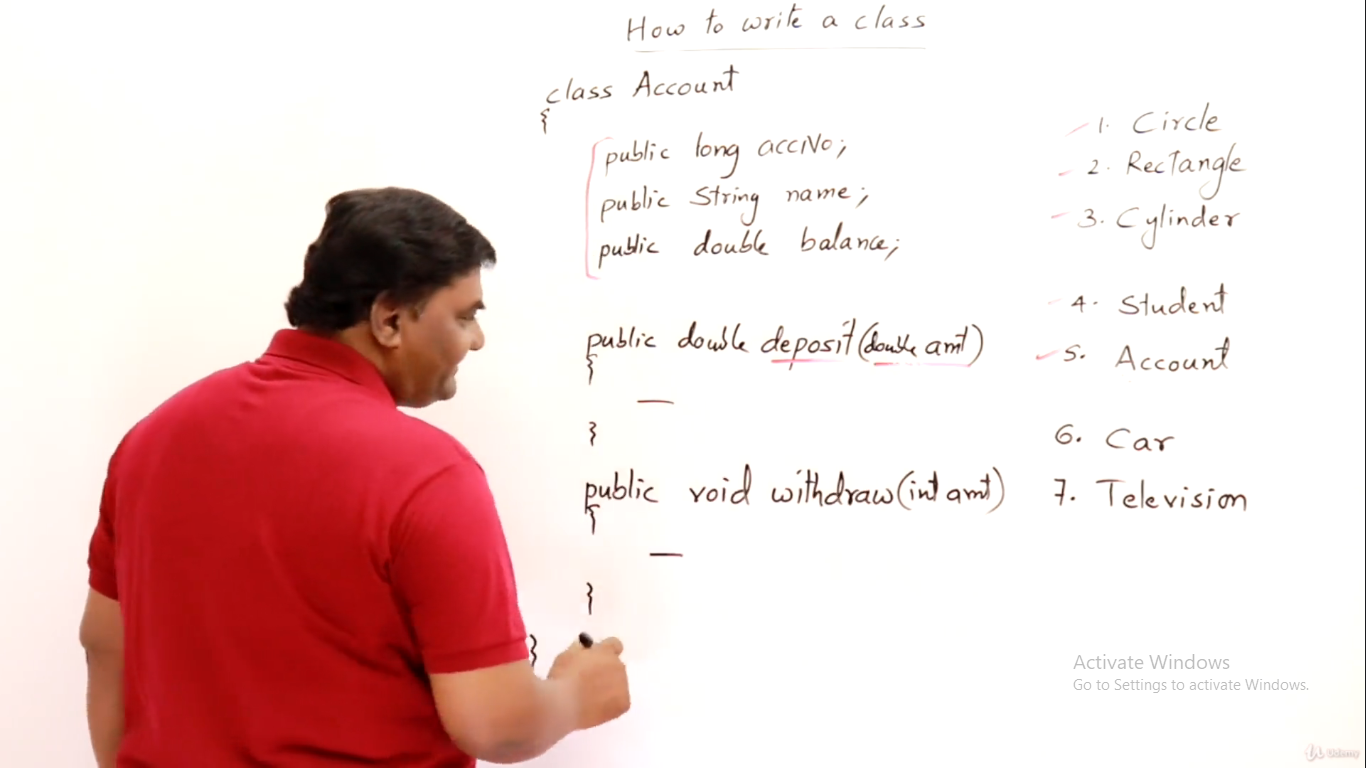 How to write a class
class Account
{
public long accNo;
public String name;
public double balance;
public double deposit(double amt)
{
—
}
public void withdraw(int amt)
{
—
}
}
1. Circle
2. Rectangle
3. Cylinder
4. Student
5. Account
6. Car
7. Television
Activate Windows
Go to Settings to activate Windows.
Udemy